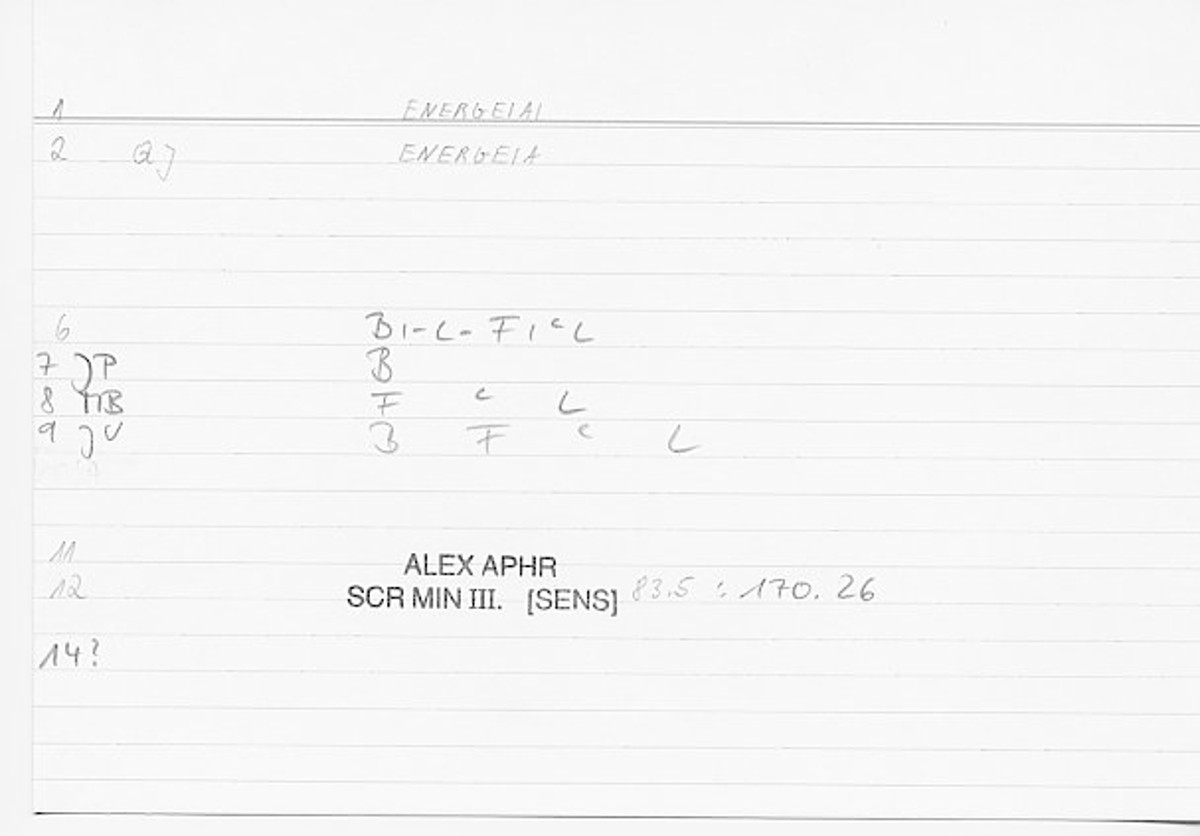 1 ENERGEIAI
2 QJ ENERGEIA
6 BI-L-FICL
7 JP B
8 ΠB F C L
9 JV B F C L
11 ALEX APHR
12 SCR MIN III. [SENS] 83.5 : 170.26
14?